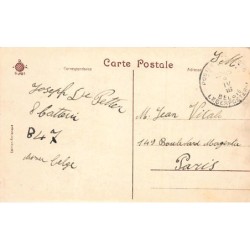 Carte Postale
Correspondance
Adresse
S.M.
Joseph De Petter
8 batterie
B 47
armée belge
M. Jean Vitah
149 Boulevard Magenta
Paris